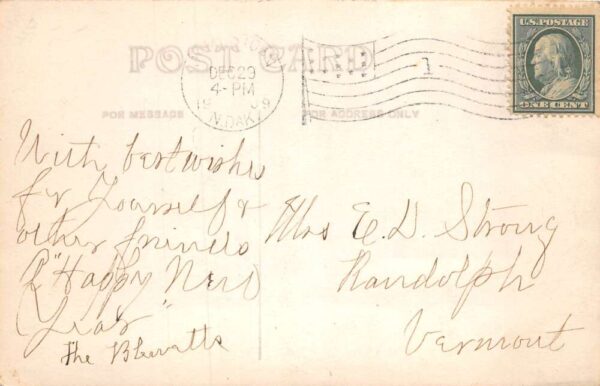 POST CARD
DEC 29
4-PM
1909
N.DAK.
1
U.S. POSTAGE
ONE CENT
FOR MESSAGE
FOR ADDRESS ONLY
With best wishes
for Yourself &
other friends
A "Happy New
Year"
The
Mrs E. D. Strong
Randolph
Vermont